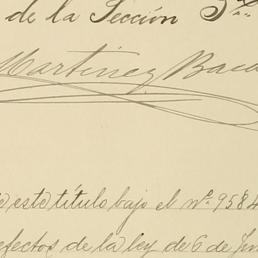 de la Sección 3ª
Martinez Baca
este título bajo el nº 9584
efectos de la ley de 6 de Jun